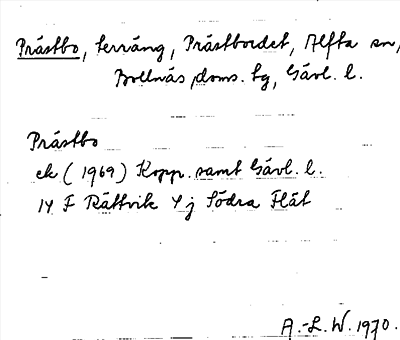 Prästbo, terräng, Prästbordet, Alfta sn,
Bollnäs doms. tg, Gävl. l.
Prästbo
ek (1969) Kopp. samt Gävl. l.
14 F Rättvik 4 j Södra Flät
A.-L. W. 1970.